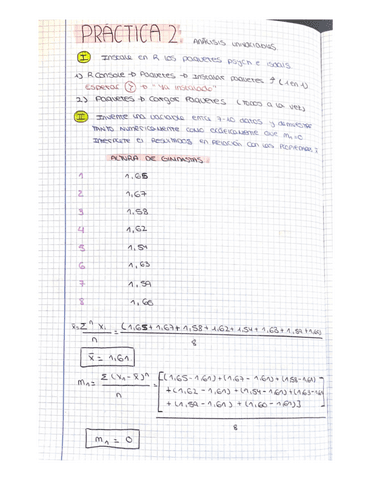 PRÁCTICA 2. ANÁLISIS UNIVARIADOS
I Instale en R los paquetes psych e
1) R Console → Paquetes → Instalar paquetes (1 en 1)
Esperar → "Ya instalado"
2) Paquetes → Cargar paquetes (Todos a la vez)
II Invente una variable entre 7-10 datos y demuestre
tanto numéricamente como gráficamente que m₁=0
Interprete el resultado en relación con las
ALTURA DE GIMNASTAS
1 1,65
2 1,67
3 1.58
4 1,62
5 1,54
6 1,63
7 1,59
8 1,60
n = (1,65+1,67+1,58+1,62+1,54+1,63+1,59+1,60)
8
x̄ = 1,61
m₁ = Σ(x₁-x̄)ⁿ = [(1,65-1,61)+(1,67-1,61)+(1,58-1,61)
n +(1,62-1,61)+(1,54-1,61)+(1,63-1,61)
+(1,59-1,61)+(1,60-1,61)]
8
m₁ = 0